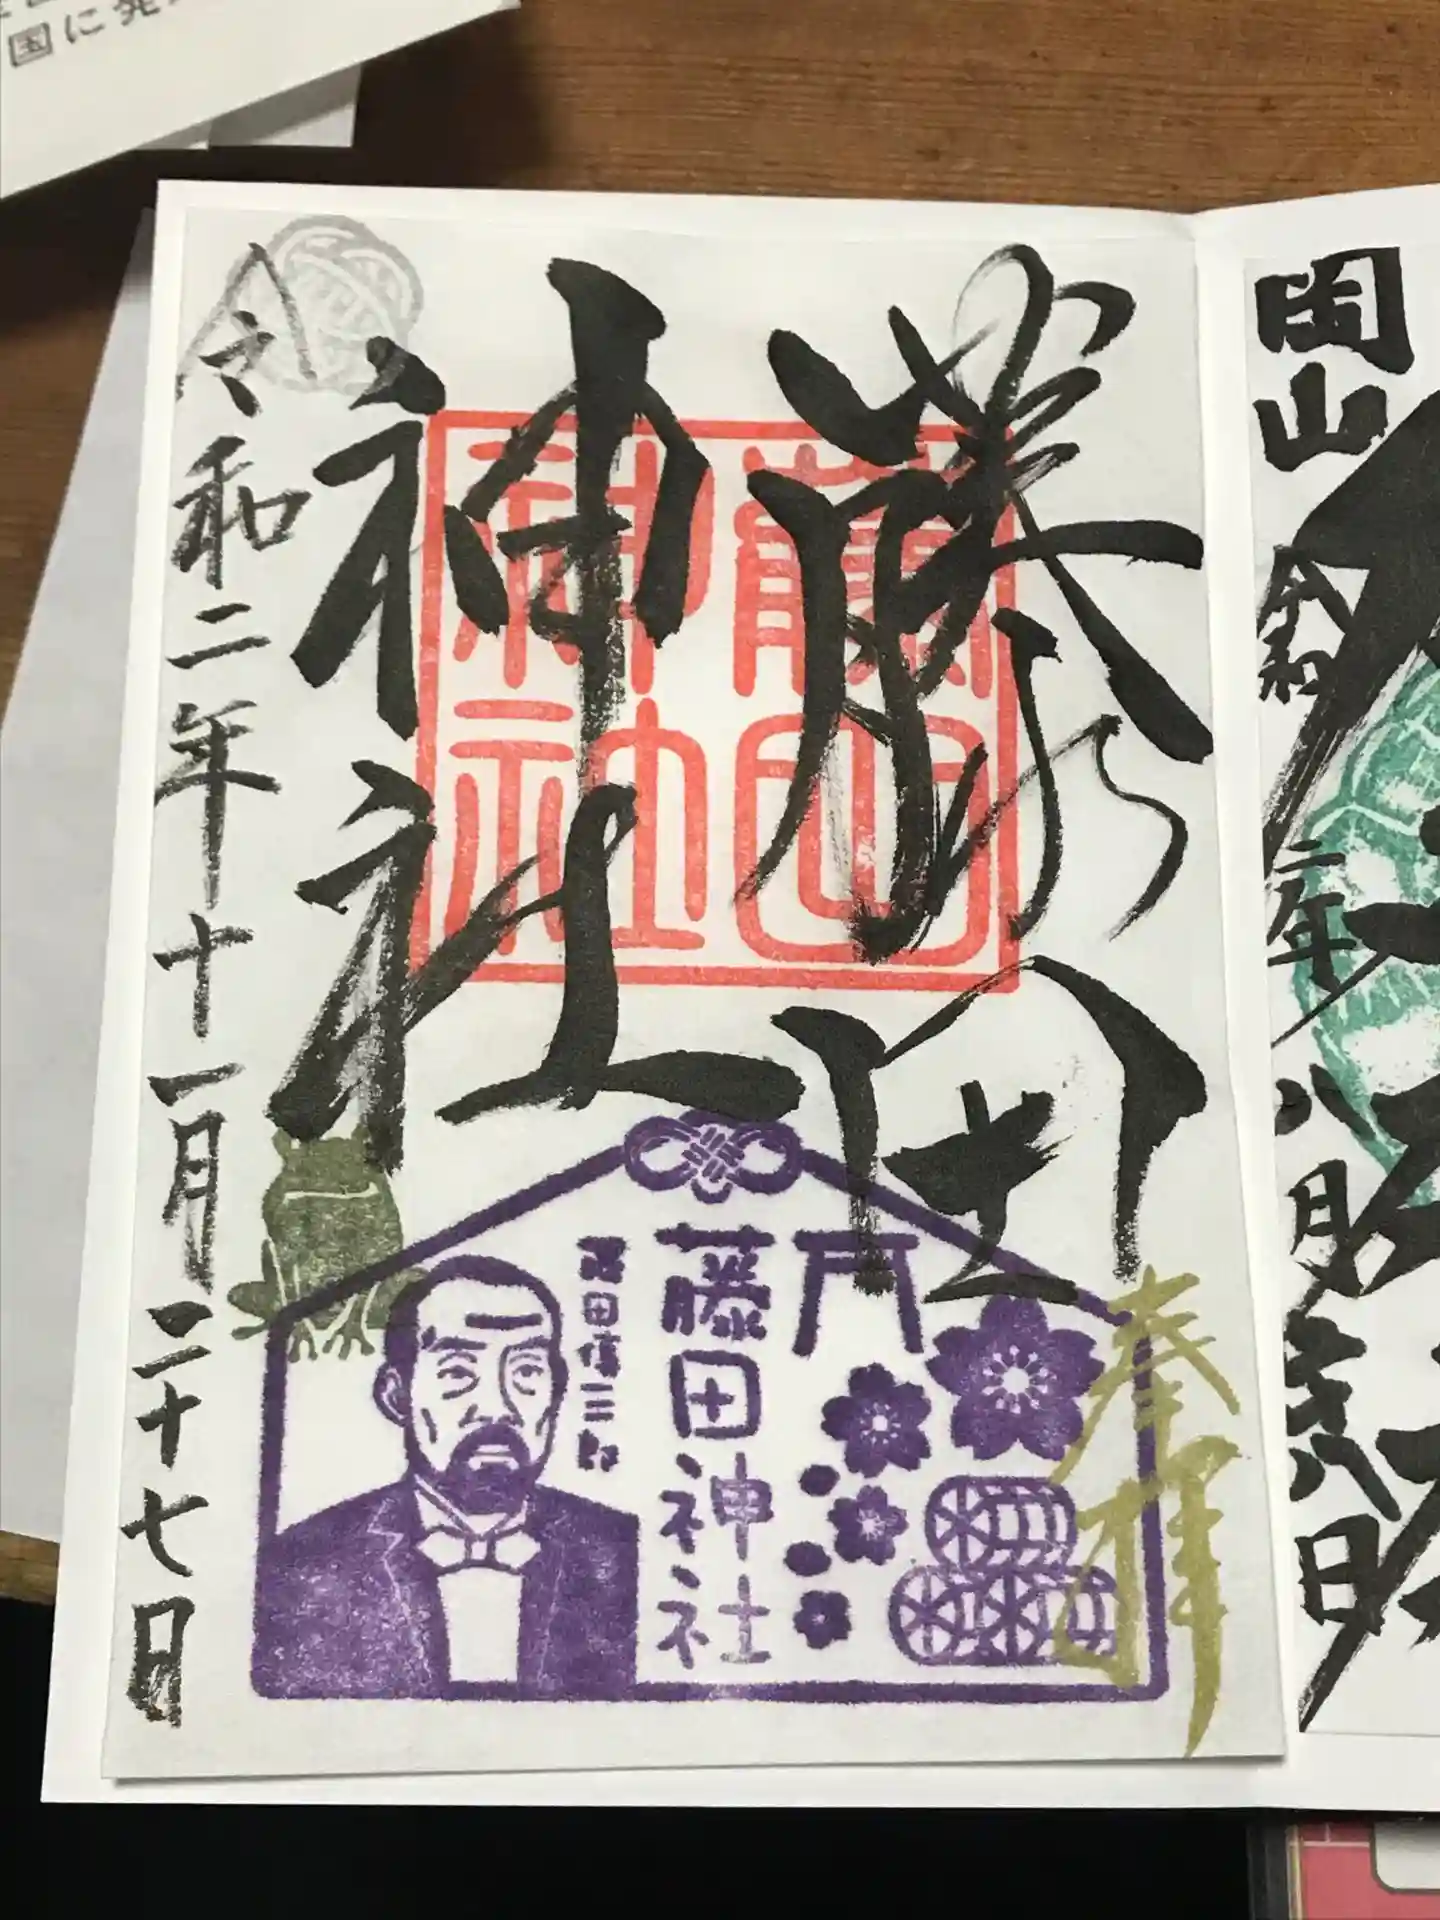 国に発
岡山
令和二年八月
八日
藤田
神社
令和二年十一月二十七日
藤田
神社
奉拝
藤田神社